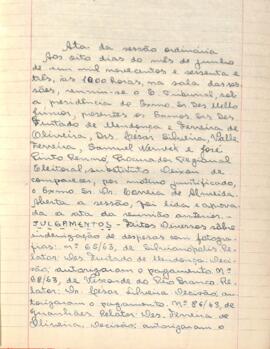 Ata da sessão ordinária
Aos oito dias do mês de junho
de um mil novecentos e sessenta e
três, às 1000 horas, na sala das ses
sões, reuniu-se o E. Tribunal, sob
a presidência do Exmo. Sr. Des. Mello
presentes os Exmos. Srs. Des.
Furtado de Mendonça e Ferreira de
Oliveira, Drs. Cesar Silveira, Valle
Ferreira, Samuel e José
Pinto Renno, Procurador Regional
Eleitoral, substituto. Deixou de
comparecer, por motivo justificado,
o Exmo. Sr. Dr. Correia de Almeida.
Aberta a sessão, foi lida e aprova
da a ata da reunião anterior.
JULGAMENTOS - Feitos Diversos sôbre
indenização de despesas com fotogra
fias: nº 65/63, de Silvianópolis. Re
lator: Des. Furtado de Mendonça. Deci
são: autorizaram o pagamento. Nº
68/63, de Visconde do Rio Branco. Re
lator: Dr. Cesar Silveira. Decisão: au
torizaram o pagamento. Nº 86/63, de
Guanhães. Relator: Des. Ferreira de
Oliveira. Decisão: autorizaram o